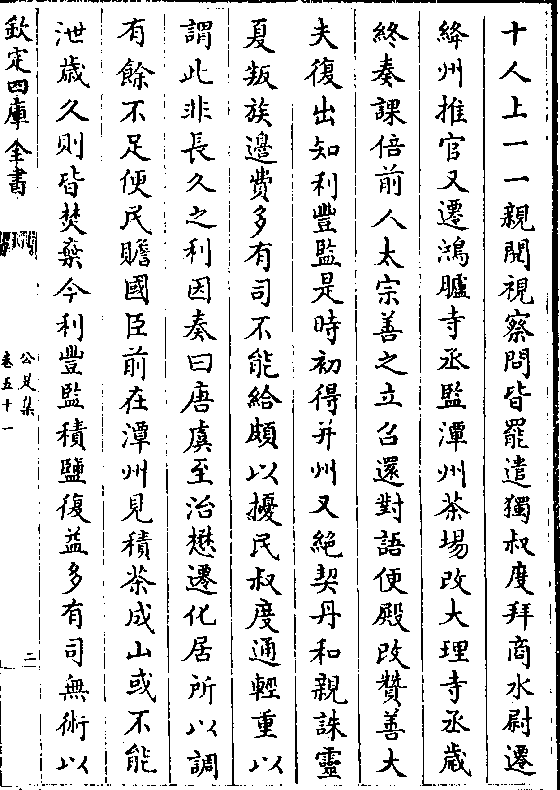 十人上一一親閱視察問皆罷遣獨叔度拜商水尉遷
絳州推官又遷鴻臚寺丞監潭州茶場改大理寺丞歲
終奏課倍前人太宗善之立召還對語便殿改贊善大
夫復出知利豐監是時初得并州又絶契丹和親誅靈
夏叛族邊費多有司不能給頗以擾民叔度通輕重以
謂此非長久之利因奏曰唐虞至治懋遷化居所以調
有餘不足便民贍國臣前在潭州見積茶成山或不能
泄歲久則皆焚棄今利豐監積鹽復益多有司無術以
欽定四庫全書
公是集
卷五十一
二